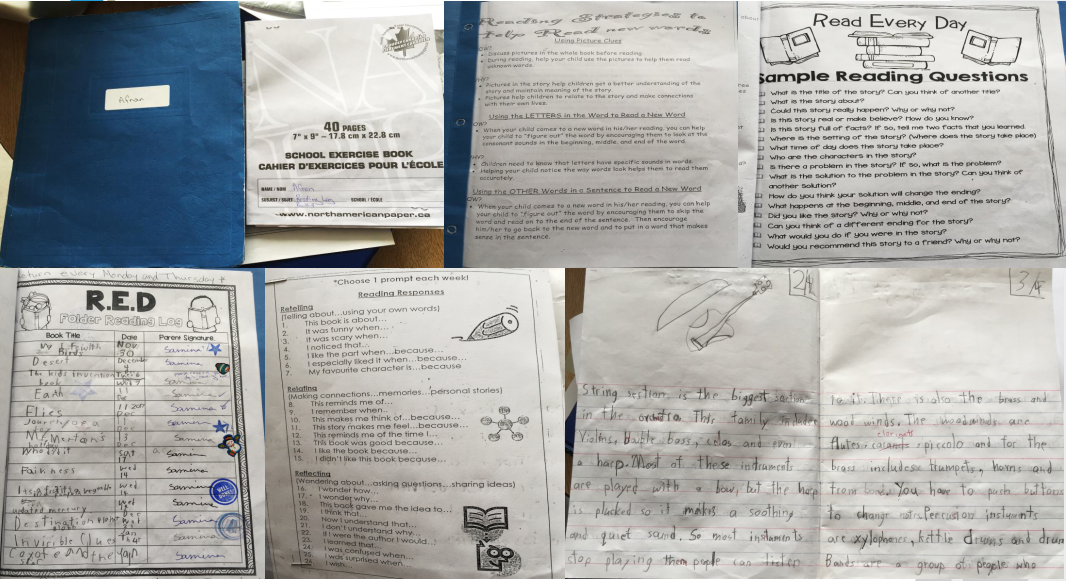 Afnan
40 PAGES
7" x 9" – 17.8 cm x 22.8 cm
SCHOOL EXERCISE BOOK
CAHIER D'EXERCICES POUR L'ÉCOLE
NAME / NOM Afnan
SUBJECT / SUJET Reading Log SCHOOL / ÉCOLE
www.northamericanpaper.ca
Reading Strategies to
Help Read new words
Using Picture Clues
Discuss pictures in the whole book before reading.
During reading, help your child use the pictures to help them read
unknown words.
Pictures in the story help children get a better understanding of the
story and maintain meaning of the story.
Pictures help children to relate to the story and make connections
with their own lives.
Using the LETTERS in the Word to Read a New Word
When your child comes to a new word in his/her reading, you can help
your child to "figure out" the word by encouraging them to look at the
consonant sounds in the beginning, middle, and end of the word.
Children need to know that letters have specific sounds in words.
Helping your child notice the way words look helps them to read them
accurately.
Using the OTHER Words in a Sentence to Read a New Word
When your child comes to a new word in his/her reading, you can help
your child to "figure out" the word by encouraging them to skip the
word and read on to the end of the sentence. Then encourage
him/her to go back to the new word and to put in a word that makes
sense in the sentence.
Read Every Day
Sample Reading Questions
What is the title of the story? Can you think of another title?
What is the story about?
Could this story really happen? Why or why not?
Is this story real or make believe? How do you know?
Is this story full of facts? If so, tell me two facts that you learned.
Where is the setting of the story? (Where does the story take place)
What time of day does the story take place?
Who are the characters in the story?
Is there a problem in the story? If so, what is the problem?
What is the solution to the problem in the story? Can you think of
another solution?
How do you think your solution will change the ending?
What happens at the beginning, middle, and end of the story?
Did you like the story? Why or why not?
Can you think of a different ending for the story?
What would you do if you were in the story?
Would you recommend this story to a friend? Why or why not?
every Monday and Thursday *
R.E.D
Folder Reading Log
Book Title Date Parent Signature
My life with Birds Nov 30 Samina
Desert Samina
The kids invention book Samina
Earth Samina
Flies Samina
Journey of a Samina
13 Samina
Whodunit Sat Samina
Fairness Wed Samina
Wed 14 Samina
Wed Samina
Destination Samina
Invisible Clues Jan Samina
Coyote and the Jan Samina
WELL DONE!
*Choose 1 prompt each week!
Reading Responses
Retelling
(Telling about...using your own words)
1. This book is about...
2. It was funny when...
3. It was scary when...
4. I noticed that...
5. I like the part when...because...
6. I especially liked it when...because...
7. My favourite character is...because
Relating
(Making connections...memories...personal stories)
8. This reminds me of...
9. I remember when..
10. This makes me think of...because...
11. This story makes me feel...because...
12. This reminded me of the time I...
13. This book was good because...
14. I like the book because...
15. I didn't like this book because...
Reflecting
(Wondering about...asking questions...sharing ideas)
16. I wonder how...
17. I wonder why...
18. This book gave me the idea to...
19. I think that...
20. Now I understand that...
21. I don't understand why...
22. If I were the author I would...
23. I learned that...
24. I was confused when...
25. I was surprised when...
26. I wish...
2/4
String section is the biggest section
in the This family includes
Violins, double bass, celos and even
a harp. Most of these instruments
are played with a bow, but the harp
is plucked so it makes a soothing
and quiet sound. So most instuments
stop playing them people can listen
3/4
to it. There is also the brass and
wood winds. The woodwinds are
clarinets
flutes piccolo and for the
brass includes trumpets, horns and
trombones. You have to push buttons
to change notes. Percusion instuments
are xylophones, kittle drums and drum
Bands are a group of people who